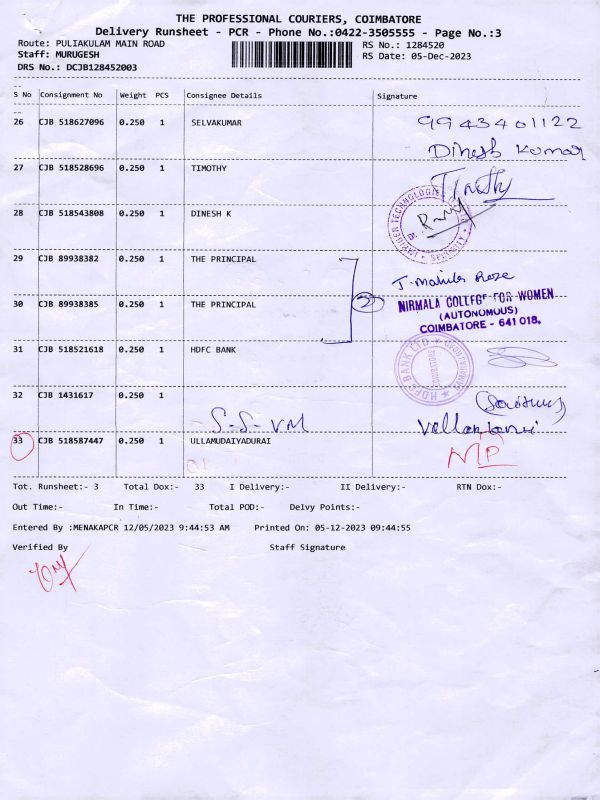 THE PROFESSIONAL COURIERS, COIMBATORE
Delivery Runsheet - PCR - Phone No.:0422-3505555 - Page No.:3
Route: PULIAKULAM MAIN ROAD RS No.: 1284520
Staff: MURUGESH RS Date: 05-Dec-2023
DRS No.: DCJB128452003
S No Consignment No Weight PCS Consignee Details Signature
26 CJB 518627096 0.250 1 SELVAKUMAR 9943401122
Dinesh Kumar
27 CJB 518528696 0.250 1 TIMOTHY Timothy
28 CJB 518543808 0.250 1 DINESH K
IMPIGER TECHNOLOGIES
* SECURITY *
29 CJB 89938382 0.250 1 THE PRINCIPAL
2 Rose
30 CJB 89938385 0.250 1 THE PRINCIPAL NIRMALA COLLEGE FOR WOMEN
(AUTONOMOUS)
COIMBATORE - 641 018.
31 CJB 518521618 0.250 1 HDFC BANK
HDFC BANK LTD
32 CJB 1431617 0.250 1
S-S-VM
33 CJB 518587447 0.250 1 ULLAMUDAIYADURAI
MP
Tot. Runsheet:- 3 Total Dox:- 33 I Delivery:- II Delivery:- RTN Dox:-
Out Time:- In Time:- Total POD:- Delvy Points:-
Entered By :MENAKAPCR 12/05/2023 9:44:53 AM Printed On: 05-12-2023 09:44:55
Verified By Staff Signature